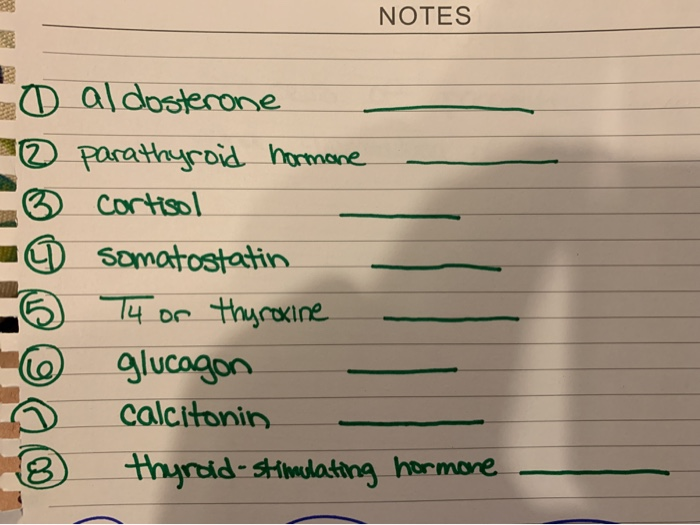 NOTES
① aldosterone ________
② parathyroid hormone ________
③ cortisol ________
④ somatostatin ________
⑤ T4 or thyroxine ________
⑥ glucagon ________
⑦ calcitonin ________
⑧ thyroid-stimulating hormone ________